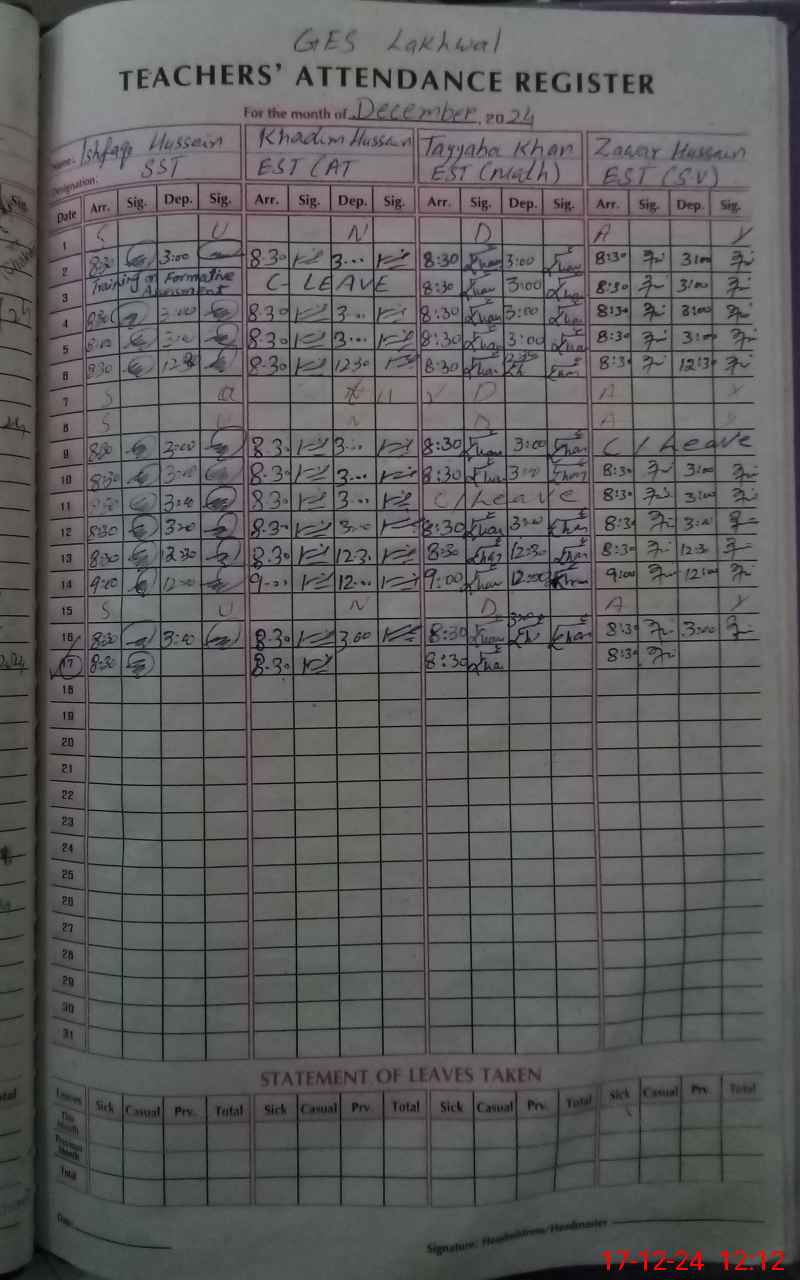 GES Lakhwal
TEACHERS' ATTENDANCE REGISTER
For the month of December, 2024
Name: Ishfaq Hussain Khadim Hussain Tayyaba Khan Zawar Hussain
Designation: SST EST (AT EST (Math) EST (SV)
Date Arr. Sig. Dep. Sig. Arr. Sig. Dep. Sig. Arr. Sig. Dep. Sig. Arr. Sig. Dep. Sig.
1 S U N D A Y
2 8:30 3:00 8.30 3... 8:30 Khan 3:00 Khan 8:30 3:00
3 Training on Formative Assessment C- LEAVE 8:30 Khan 3:00 Khan 8:30 3:00
4 8:30 3:00 8.30 3... 8:30 Khan 3:00 Khan 8:30 3:00
5 3:00 8.30 3... 8:30 Khan 3:00 Khan 8:30 3:00
6 8:30 12:30 8.30 12.30 8:30 Khan 12:30 Khan 8:30 12:30
7 S D A Y
8 S U N D A Y
9 8:30 3:00 8.30 3... 8:30 Khan 3:00 Khan C/Leave
10 8:30 3:00 8.30 3... 8:30 Khan 3:00 Khan 8:30 3:00
11 8:30 3:00 8.30 3... C/Leave 8:30 3:00
12 8:30 3:00 8.30 3.00 8:30 Khan 3:00 Khan 8:30 3:00
13 8:30 12:30 8.30 12.30 8:30 Khan 12:30 Khan 8:30 12:30
14 9:00 12:00 9... 12... 9:00 Khan 12:00 Khan 9:00 12:00
15 S U N D A Y
16 8:30 3:00 8.30 3.00 8:30 Khan 3:00 Kh Khan 8:30 3:00
17 8:30 8.30 8:30 Khan 8:30
18
19
20
21
22
23
24
25
26
27
28
29
30
31
STATEMENT OF LEAVES TAKEN
Leaves Sick Casual Prv. Total Sick Casual Prv. Total Sick Casual Prv. Total Sick Casual Prv. Total
This Month
Previous Month
Total
Date:
Signature: Headmistress/Headmaster
17-12-24 12:12